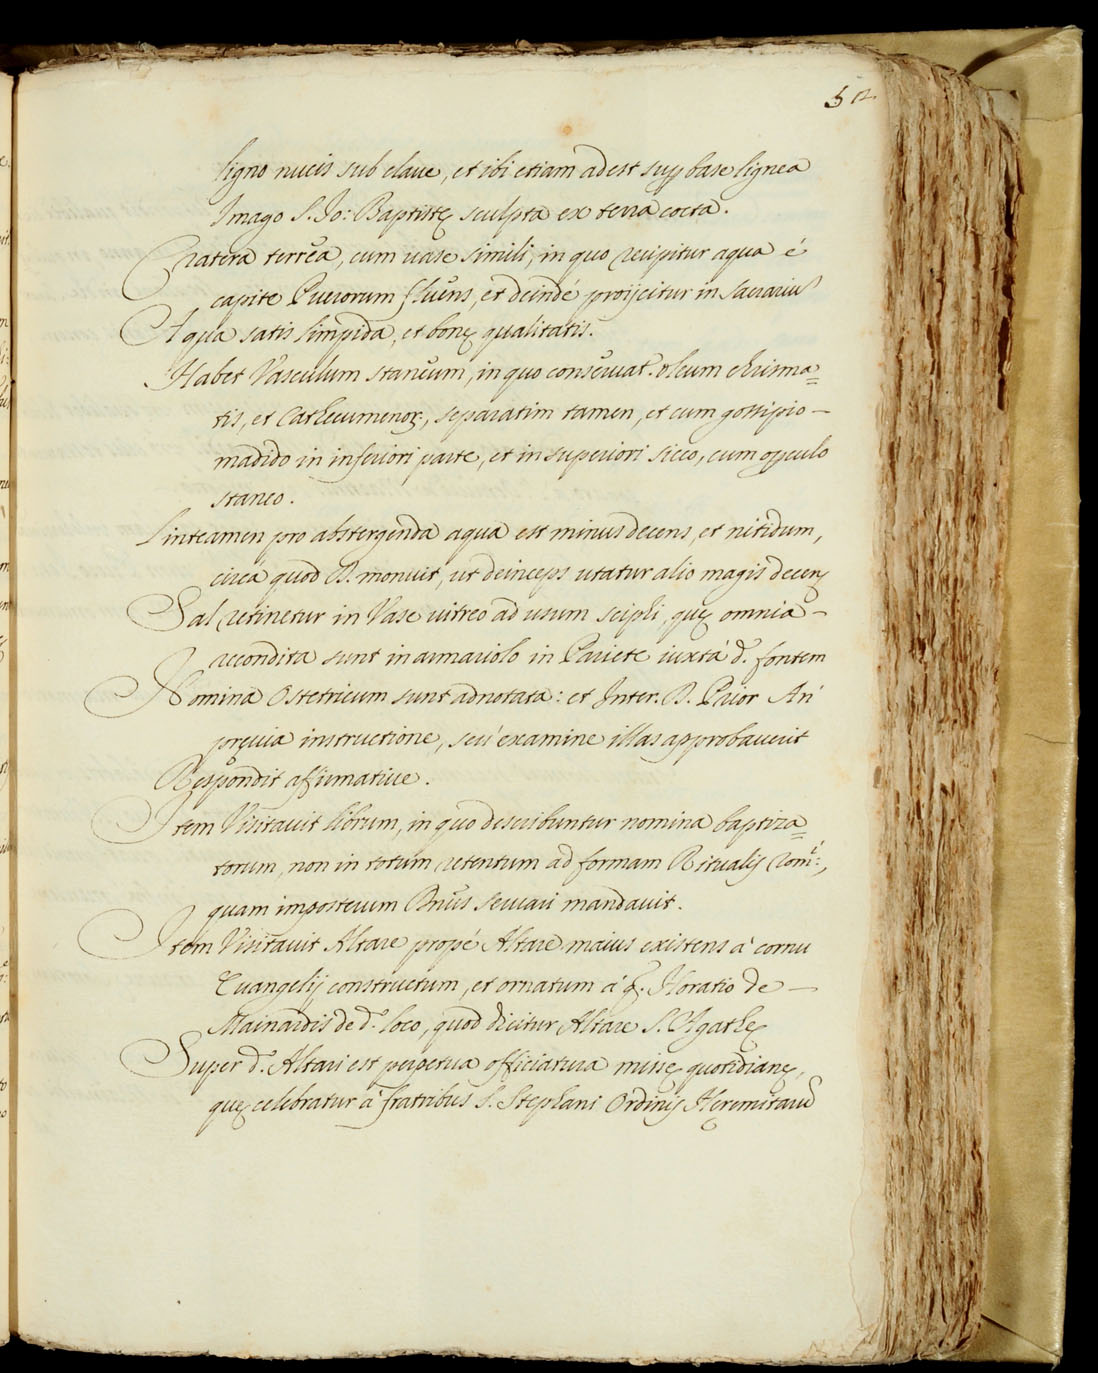 52
ligno nucis sub claue, et ibi etiam adest sup base lignea
Imago S. Jo: Baptistę sculpta ex terra cocta.
Cratera terrea, cum uase simili, in quo recipitur aqua é
capite Puerorum fluens, et deindé proijcitur in Sacrariũ
Aqua satis limpida, et bonę qualitatis.
Habet Vasculum staneum, in quo conseruat. oleum chrisma=
tis, et Cathecumenoꝝ, separatim tamen, et cum gossipio -
madido in inferiori parte, et in superiori sicco, cum opculo
staneo.
Linteamen pro abstergenda aqua est minus decens, et nitidum,
circá quod R. monuit, ut deinceps utatur alio magis decenţ
Sal retinetur in Vase uitreo ad usum scipli, quę omnia -
recondita sunt in armariolo in Pariete iuxtá d. fontem
Nomina Ostetricum sunt adnotata: et Inter. R. Prior An'
pręuia instructione, seú examine illas approbauerit
Respondit affirmatiue.
Item Visitauit librum, in quo describuntur nomina baptiza=
torum, non in totum retentum ad formam Ritualis Rom:i,
quam imposterum Rm̃us seruari mandauit.
Item Visitauit Altare propé Altare maius existens á cornu
Euangelij constructum, et ornatum á q. Horatio de -
Mainardis de d. loco, quod dicitur Altare S. Agathę
Super d. Altari est perpetua officiatura missę quotidianę,
quę celebratur á fratribus S. Stephani Ordinis Hęremitarũ